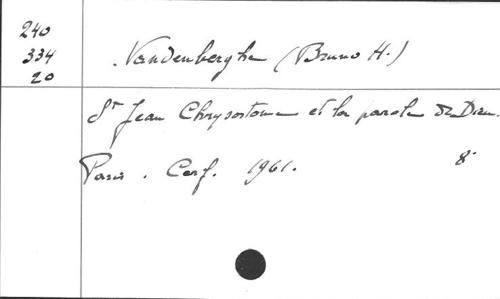 240
334
20
Vandenberghe (Bruno H.)
St Jean Chrysostome et la parole de Dieu.
Paris. Cerf. 1961. 8°